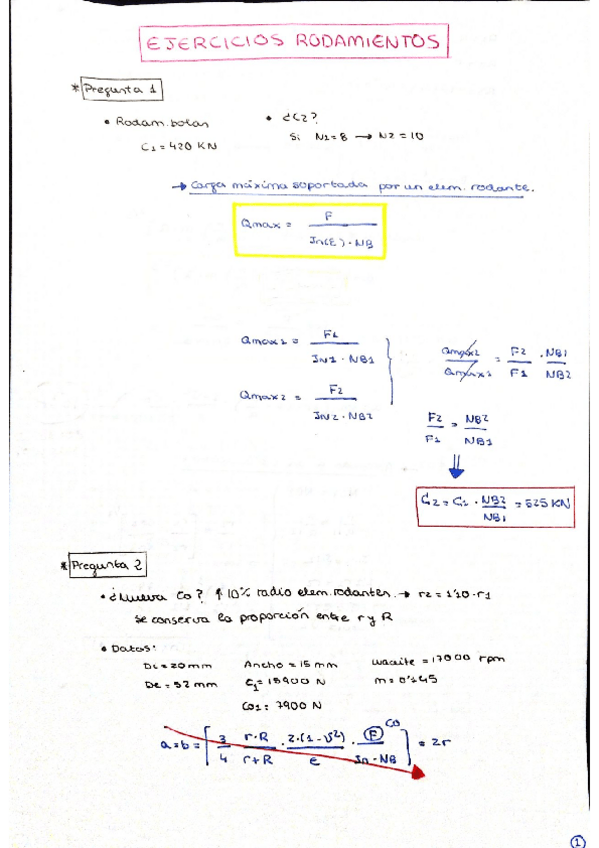 EJERCICIOS RODAMIENTOS
* Pregunta 1
• Rodam. bolas
• ¿C2?
C1 = 420 KN
Si N1 = 8 → N2 = 10
→ Carga máxima soportada por un elem. rodante.
Qmax = F / Jn(E) · NB
Qmax1 = F1 / JN1 · NB1
Qmax2 = F2 / JN2 · NB2
Qmax2 / Qmax1 = F2 / F1 · NB1 / NB2
F2 / F1 = NB2 / NB1
C2 = C1 · NB2 / NB1 = 525 KN
* Pregunta 2
• ¿Nueva Co? ↑ 10% radio elem. rodantes. → r2 = 1'10 · r1
Se conserva la proporción entre r y R
• Datos:
Di = 20 mm Ancho = 15 mm = 17000 rpm
De = 52 mm C1 = 15900 N m = 0'145
Co1 = 7900 N
a = b = [ 3 / 4 · r · R / r + R · 2 · (1 - υ²) / E · F / Jn · NB ] = 2r
Co
1